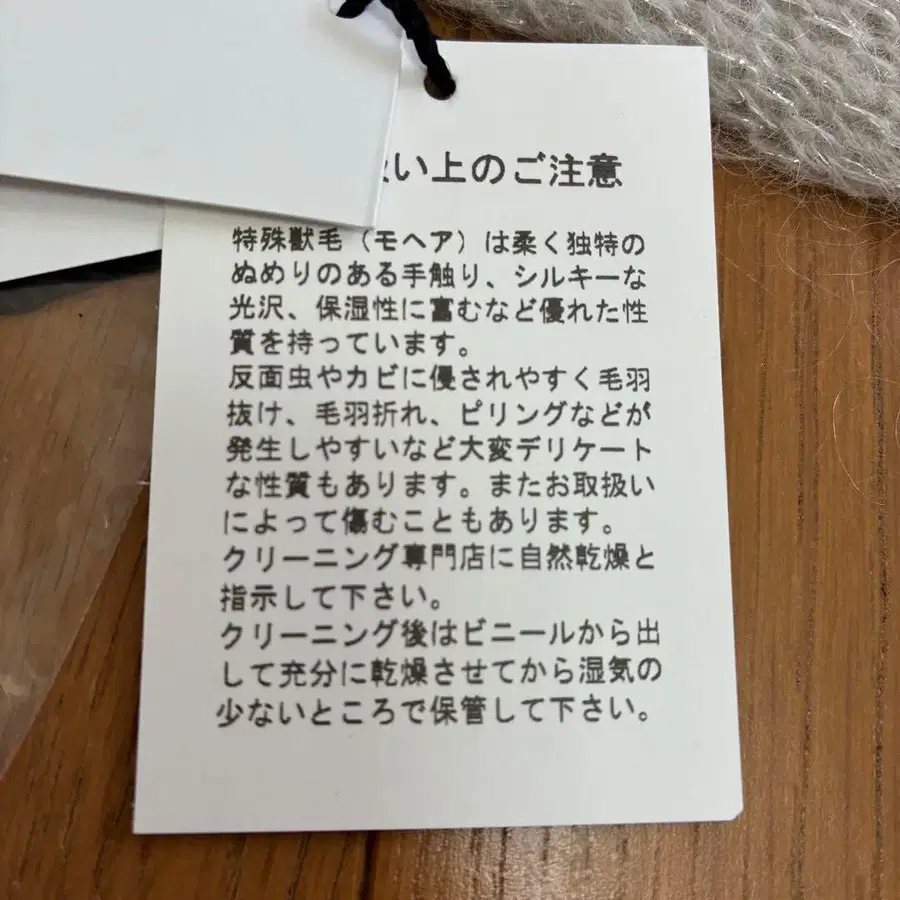 い上のご注意
特殊獣毛（モヘア）は柔く独特の
ぬめりのある手触り、シルキーな
光沢、保湿性に富むなど優れた性
質を持っています。
反面虫やカビに侵されやすく毛羽
抜け、毛羽折れ、ピリングなどが
発生しやすいなど大変デリケート
な性質もあります。またお取扱い
によって傷むこともあります。
クリーニング専門店に自然乾燥と
指示して下さい。
クリーニング後はビニールから出
して充分に乾燥させてから湿気の
少ないところで保管して下さい。